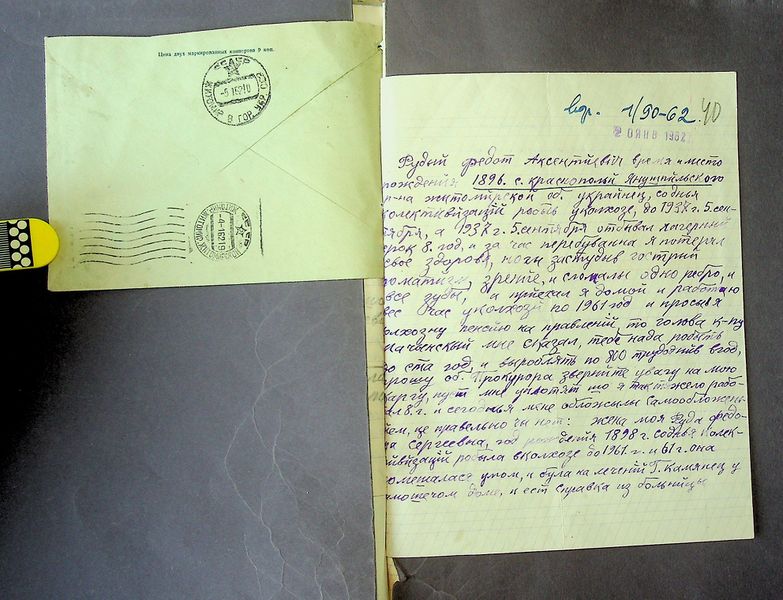 Цена двух маркированных конвертов 9 коп.
ЖИТОМИР
вхр. 1/90-62. 40
20 ЯНВ 1962
Рудый Федот Аксентиевич время и место
рождения 1896. с. Краснополь Янушпільского
р-на житомирской об. українец, содныя
колективізацій робыв уколхозе, до 1937 г. 5.сен-
тября, а 1937 г. 5 сентября отбывал лагерний
срок 8. год, и за час перебуванна я потерял
свое здоровя, ноги заступыв гострий
роматизм, зрение, и сломалы одно ребро, и
все зубы, а приехал я домой и работаю
вес час уколхозі по 1961 год и просывя
колхозну пенсию на правлений, то голова к-пу
мне сказал, тебе нада робыть
до ста год, и вырoблять по 300 трудоднів вгод,
прошу об. Прокурора зверніте увагу на мою
жаргу, пуст мне уплотят шо я так тежело рабо-
тал 8. г. и сегодныя мене обложылы Самообложень-
ем, це правельно чы нет: жена моя Руда Федо-
ра Сергеевна, год рождения 1898 г. содныя Колек-
тивізацій робыла вколхозе до 1961. г. и 61 г. она
помешаласс умом, и була на лечений Г. Камянец у
доме, и ест справка из больницы